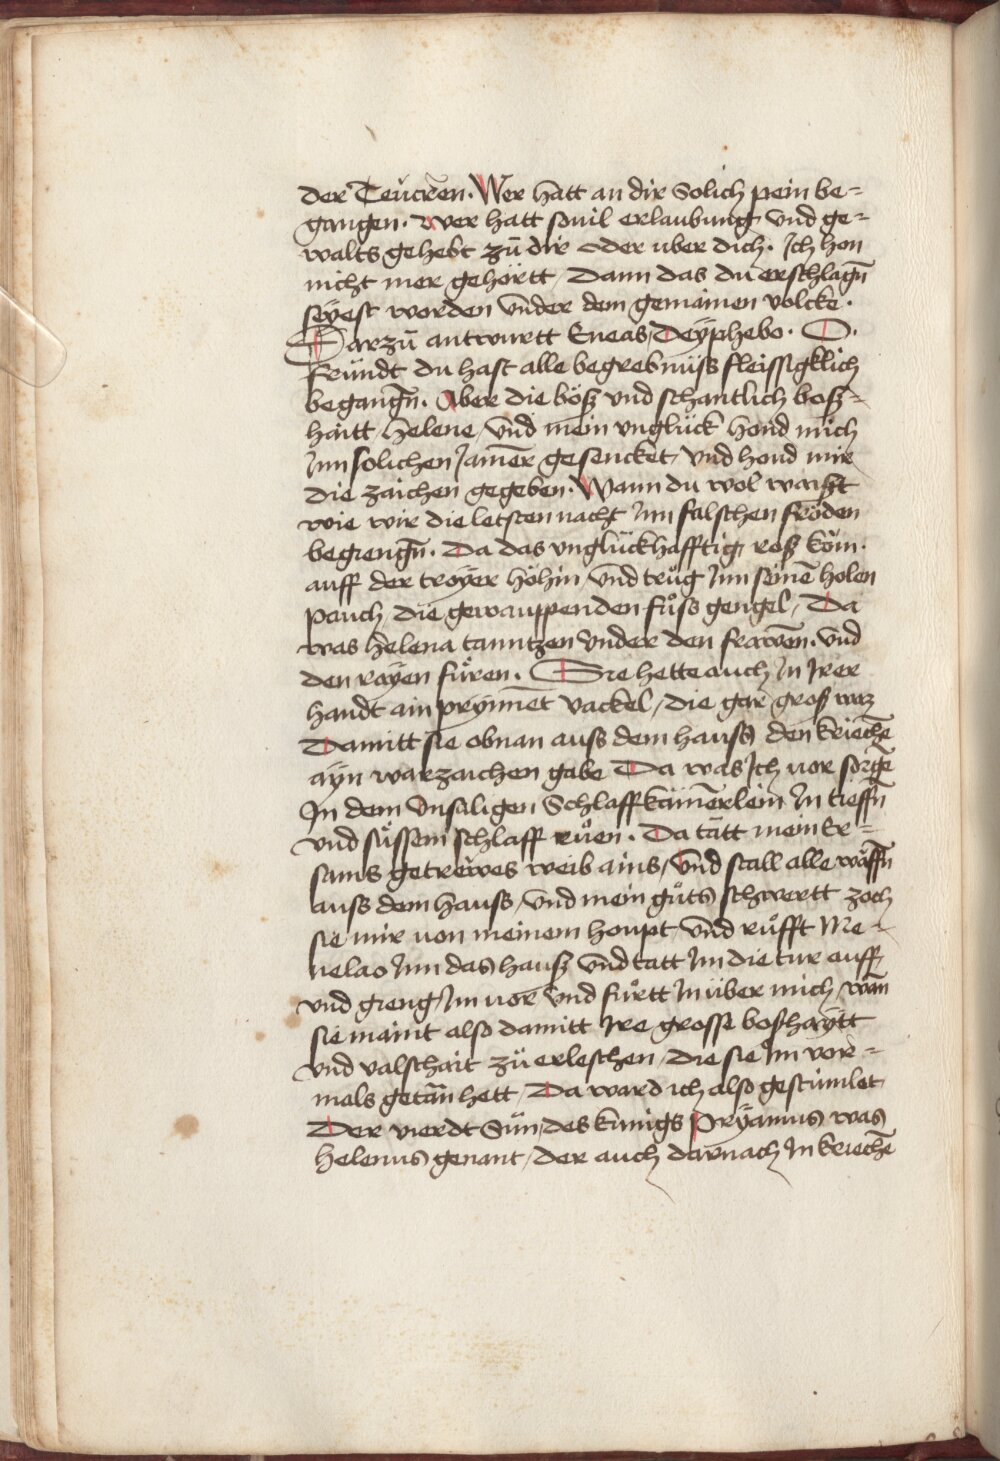 der Teucren. Wer hatt an dir Solich pein be-
gangen. wer hatt souil erlaubung vnd ge-
walts gehebt zů dir oder uber dich. Ich hon
nicht mer gehörtt / Dann das du erschlagn̄
seyest worden vnder dem gemainen volcke.
Darzů antwurtt Eneas Deÿphebo. O.
fründt du hast alle begrebnüß fleissigklich
begangn̄. Aber die böß vnd schantlich boß-
haitt helene / vnd mein vnglück hond mich
Inn solichen Jamer̄ gesencket / vnd hond mir
die zaichen gegeben. Wann du wol waist
wie wir die letsten nacht Inn falschen fröden
begiengn̄. Da das vnglückhafftig roß kom.
auff der troyer höhin / vnd trůg Inn seinē holen
pauch / die gewauppenden fůss gengel / Da
was helena tanntzen vnder den frawen̄. vnd
den rayen fůren. Sie hette auch In Irer
handt ain prynnet̄ vackel / die gar groß waz
Damitt sie obnan auss dem hauss den kriechē
ayn warzaichen gabe Da was Ich vor sorgē
In dem vnsaligen Schlaffkamerlein In tieffn̄
vnd sůssem schlaff růen. Da tätt mein Er-
sams getrewes weib ains / vnd stall alle waffn̄
auss dem hauss / vnd mein gůts schwertt zoch
sie mir von meinem houpt / vnd růfft Me-
nelao Inn das hauß vnd tatt Im die tur auff
vnd gieng Im vor vnd fůrtt In über mich / wan̄
sie maint also damitt Ire grosse boßhaytt
vnd valschait zů erleschen / die sie Im vor-
mals getān hett / Da ward ich also gestümlet
Der vierdt Sůn / des kunigs Pryamus was
helenus genant / der auch darnach In kriechē